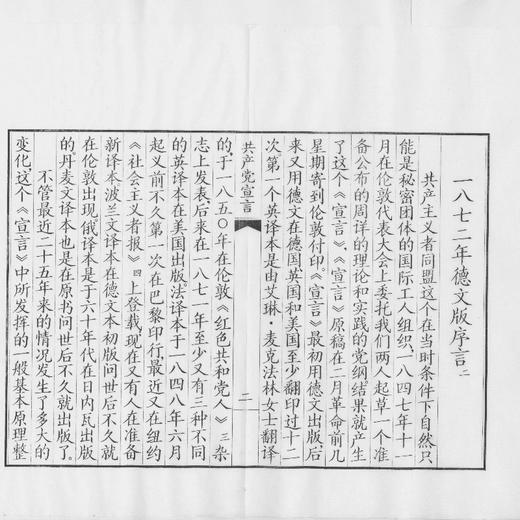 一八七二年德文版序言二
共产主义者同盟这个在当时条件下自然只
能是秘密团体的国际工人组织,一八四七年十一
月在伦敦代表大会上委托我们两人起草一个准
备公布的周详的理论和实践的党纲。结果就产生
了这个《宣言》,《宣言》原稿在二月革命前几
星期寄到伦敦付印。《宣言》最初用德文出版后
来又用德文在德国英国和美国至少翻印过十二
次第一个英译本是由艾琳·麦克法林女士翻译
共产党宣言
二
的,于一八五〇年在伦敦《红色共和党人》三杂
志上发表,后来在一八七一年至少又有三种不同
的英译本在美国出版。法译本于一八四八年六月
起义前不久第一次在巴黎印行,最近又在纽约
《社会主义者报》四上登载,现在又有人在准备
新译本波兰文译本在德文本初版问世后不久就
在伦敦出现俄译本是于六十年代在日内瓦出版
的丹麦文译本也是在原书问世后不久就出版了。
不管最近二十五年来的情况发生了多大的
变化,这个《宣言》中所发挥的一般基本原理整